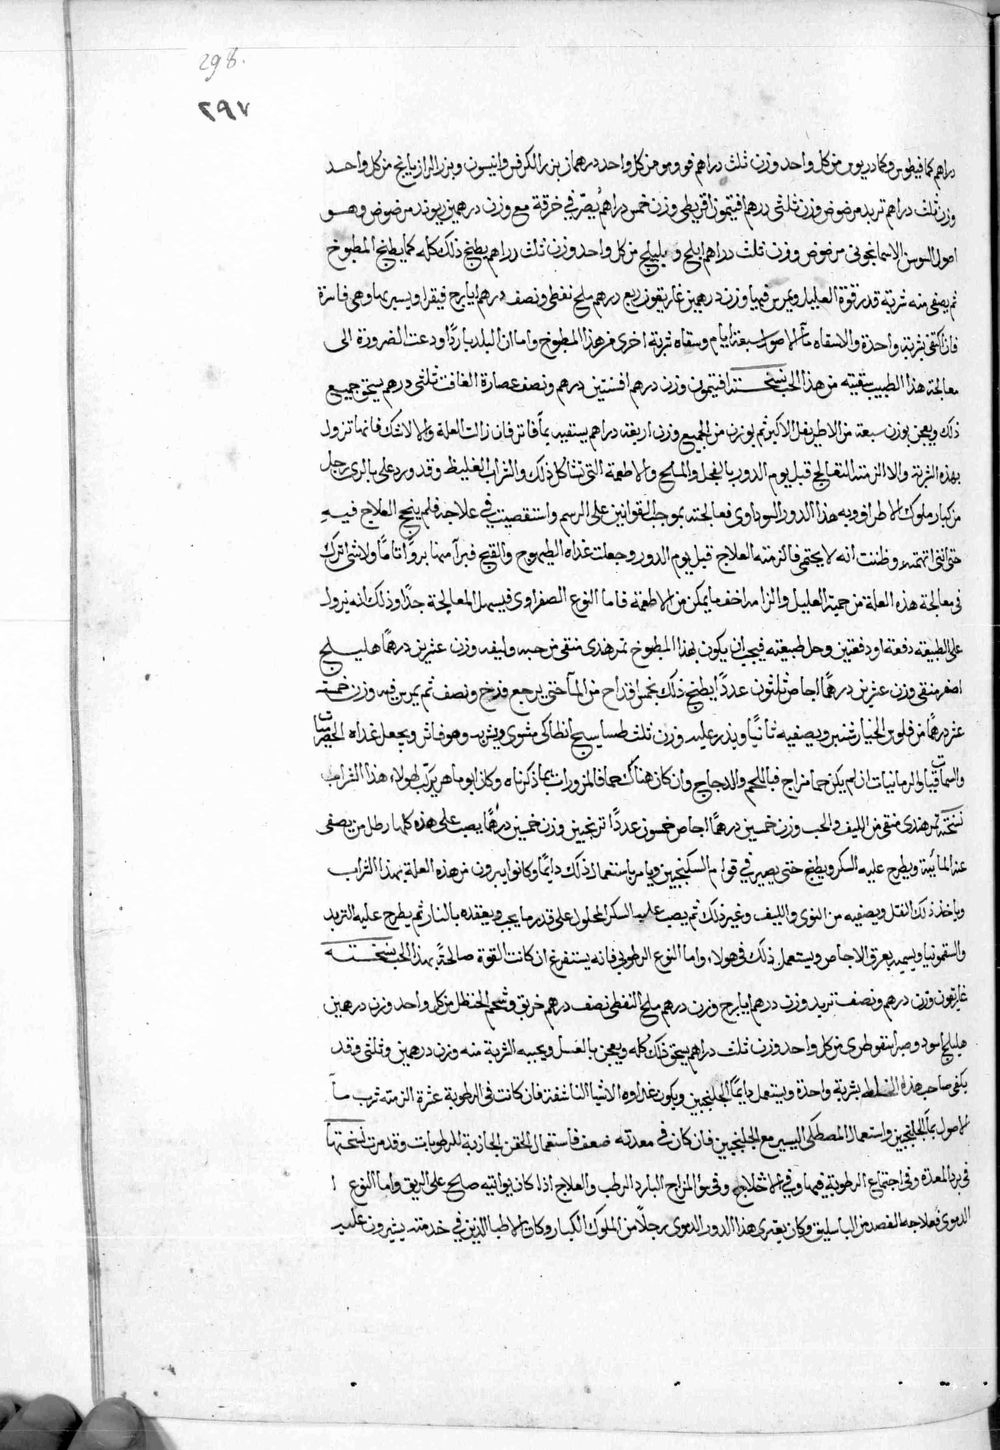 298.
٢٩٧
دراهم كمافيطوس وكمادريوس من كل واحد وزن ثلث دراهم فو ومو من كل واحد درهمان بزر الكرفس وانيسون وبزر الرازيانج من كل واحد
وزن ثلث دراهم تربد مرضوض وزن ثلثى درهم افتيمون اقريطى وزن خمس دراهم يصرّ فى خرقة مع وزن درهمين ريوند مرضوض وهو
اصول السوسن الاسمانجونى مرضوض ووزن ثلث دراهم املج وبليلج من كل واحد وزن ثلث دراهم يطبخ ذلك كله كما يطبخ المطبوخ
ثم يصفى منه شربة قدر قوة العليل ويمرس فيها وزن درهمين غاريقون ربع درهم ملح نفطى ونصف درهم ايارج فيقرا ويسير بها وهى فاترة
فان اكتفى بشربة واحدة والا سقاه ماء الاصول سبعة ايام وسقاه شربة اخرى من هذا المطبوخ واما ان البلد باردًا ودعت الضرورة الى
معالجة هذا الطبيب سقيته من هذا الحب نسخته افتيمون وزن درهم افسنتين درهم ونصف عصارة الغافت ثلثى درهم يسحق جميع
ذلك ويعجن بوزن سبعة من الاطريفل الاكبر ثم يوزن من الجميع وزن اربعة دراهم يستفيه بماء فاتر فان زالت العلة والا لا شك فانها تزول
بهذه الشربة والا الزمته التعالج قبل يوم الدور بالفجل والملح والاطعمة التى تشاكل ذلك والشراب الغليظ وقد ورد على بالرى رجل
من كبار ملوك الاطراف وبه هذا الدور السوداوى فعالجته بموجب القوانين على الرسم واستقصيت فى علاجه فلم ينجع العلاج فيه
حتى اننى اتهمته وظننت انه لا يحتمى فالزمته العلاج قبل يوم الدور وجعلت غداه الطيهوج والقبج فبرأ منها بروًا تامًا ولا شى اترك
فى معالجة هذه العلة من حمية العليل والزامه اخف ما يمكن من الاطعمة فاما النوع الصفراوى فيسهل المعالجة جدًا وذلك انه يزول
على الطبيعة دفعة او دفعتين وحل طبيعته فيجب ان يكون بهذا المطبوخ تمر هندى منقى من حبه وليفه وزن عشرين درهمًا هليلج
اصفر منقى وزن عشرين درهمًا اجاص ثلثون عددًا يطبخ ذلك بخمس اقداح من الماء حتى يرجع قدح ونصف ثم يمرس فيه وزن خمسة
عشر درهمًا من فلوس الخيارشنبر ويصفيه ثانيًا ويذر عليه وزن ثلث طساسيج انطاكى مشوى ويشربه وهو فاتر ويجعل غداه الحصرميات
والسماقيات والرمانيات ان لم يكن حما مزاج فباللحم والدجاج وان كان هناك حما فالمزورات بما ذكرناه وكان ابو ماهر يركّب لهولاء هذا الشراب
نسخته تمر هندى منقى من الليف والحب وزن خمسين درهمًا اجاص خمسون عددًا ترنجبين وزن خمسين درهمًا يصب على هذه كلها رطل من يصفى
عنه المائية ويطرح عليه السكر ويطبخ حتى يصير فى قوام السكنجبين ويامر باستعمال ذلك دايمًا وكانوا يبرون من هذه العلة بهذا الشراب
وياخذ ذلك الثفل ويصفيه من النوى والليف وغير ذلك ثم يصب عليه السكر المحلول على قدر ما يجب ويعقده بالنار ثم يطرح عليه التربد
والسقمونيا ويسميه بعرق الاجاص ويستعمل ذلك فى هولاء واما النوع الرطوبى فانه يستفرغ ان كانت القوة صالحة بهذا الحب نسخته
غاريقون وزن درهم ونصف تربد وزن درهم ايارج وزن درهم ملح النفطى نصف درهم خربق وشحم الحنظل من كل واحد وزن درهمين
هليلج اسود وصبر اسقوطرى من كل واحد وزن ثلث دراهم يسحق ذلك كله ويعجن بالعسل ويحببه الشربة منه وزن درهمين وثلثى وقد
يكفى صاحب هذه الخلط بشربة واحدة ويستعمل دايمًا الجلنجبين ويكون غداوه الاشيا الناشفة فان كانت فى الرطوبة عثرة الزمته شرب ماء
الاصول بماء الجلنجبين واستعمال المصطكى اليسير مع الجلنجبين فان كان فى معدته ضعف فاستعمال الحقن الجاذبة للرطوبات وقد مرت نسختها
فى برد المعدة وفى اجتماع الرطوبة فيها وفى الاختلاج وفى سو المزاج البارد الرطب والعلاج اذا كان يواتيه صالح على الريق واما النوع
الدموى فعلاجه الفصد من الباسليق وكان يعترى هذا الدور الدموى رجلًا من الملوك الكبار وكان الاطبا الذين فى خدمته يشيرون عليه